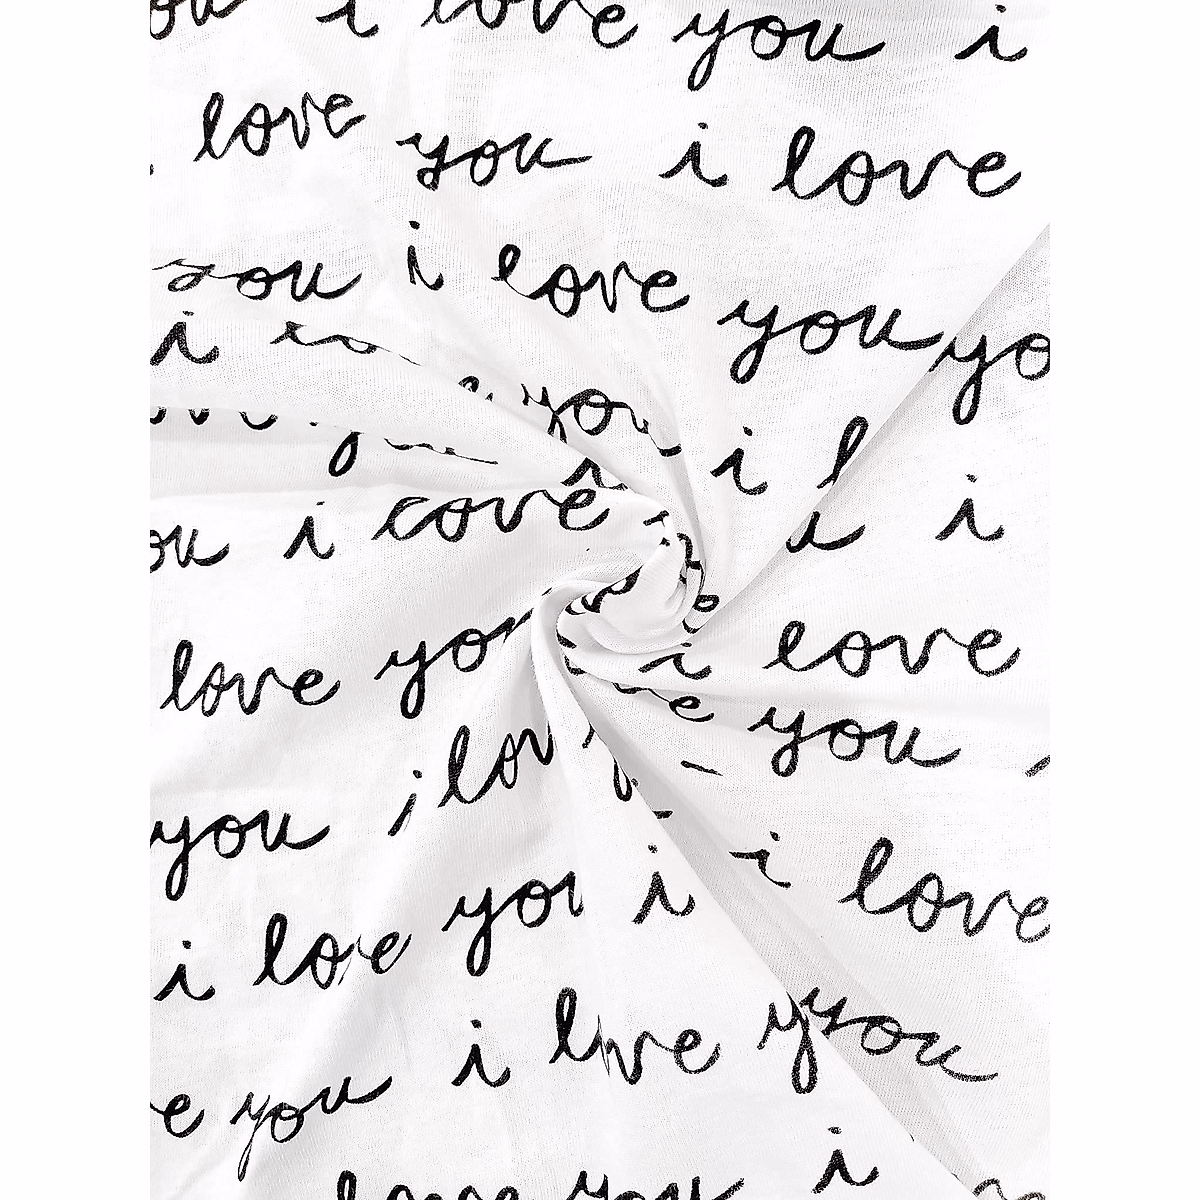 ou i love you i
love you i love
you i love you yo
i
you i l
ou i love i i
love you i love
i lov e you
you i i love
i love you i
e you i love you
love you i